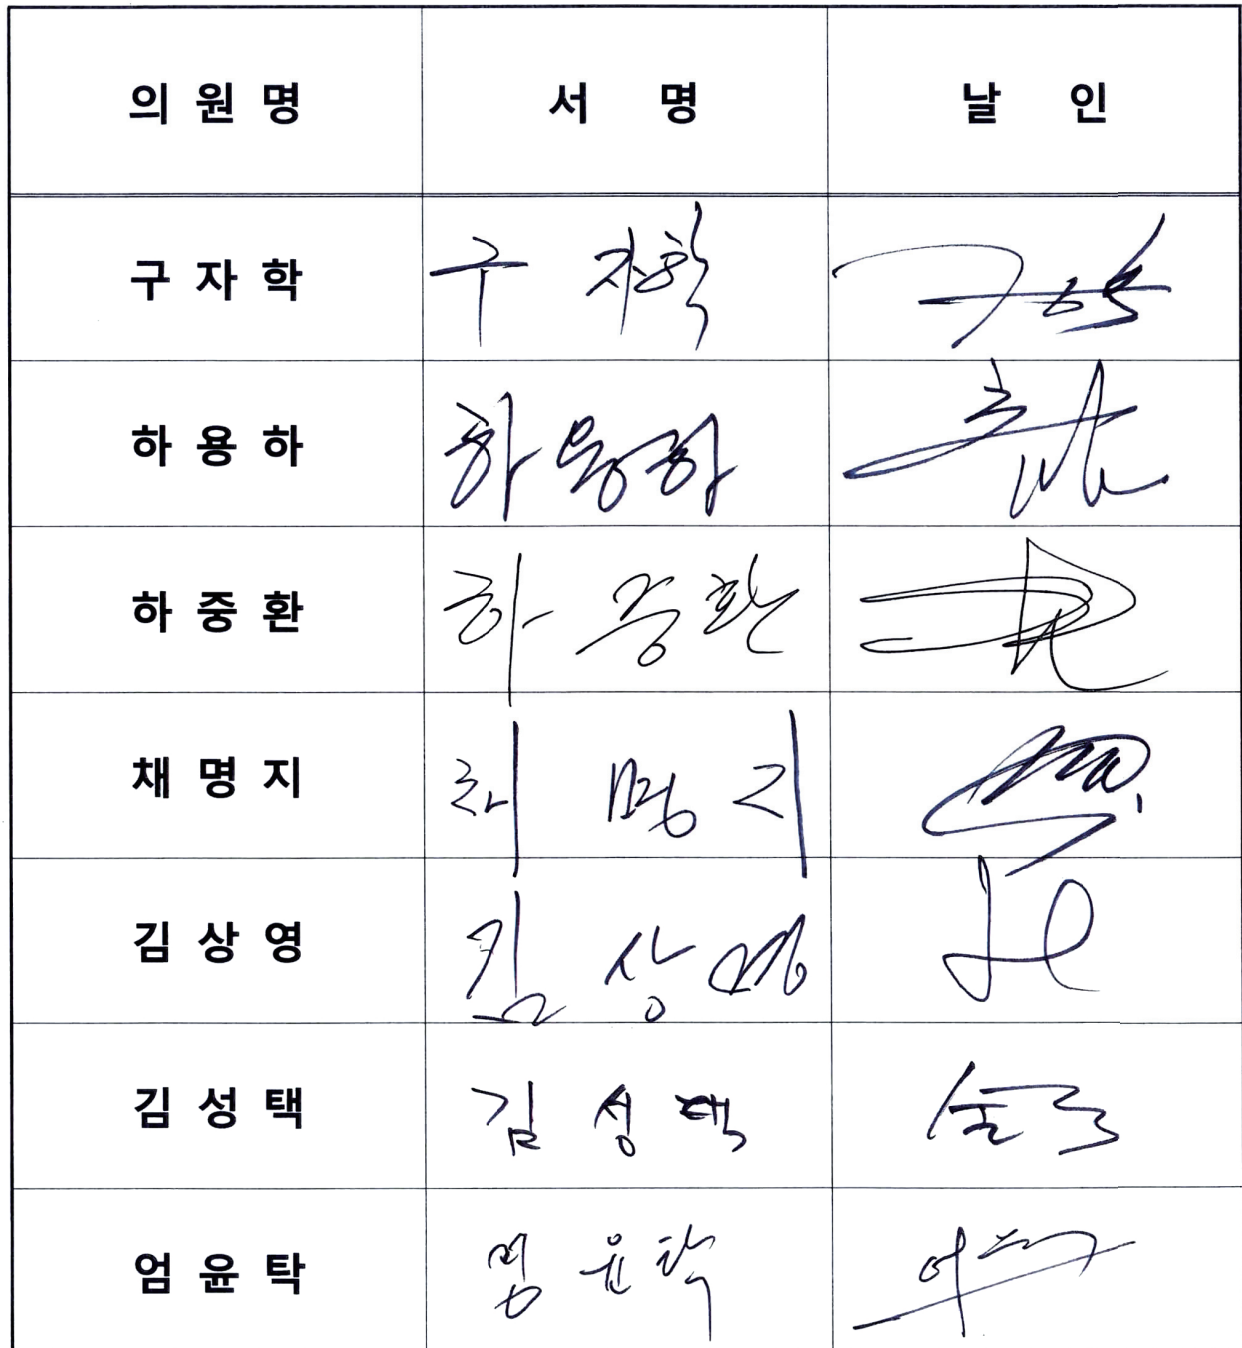 의 원 명 서 명 날 인
구 자 학 구 자학
하 용 하 하용하
하 중 환 하 중환
채 명 지 채 명 지
김 상 영 김 상 영
김 성 택 김 성 택
엄 윤 탁 엄 윤 탁